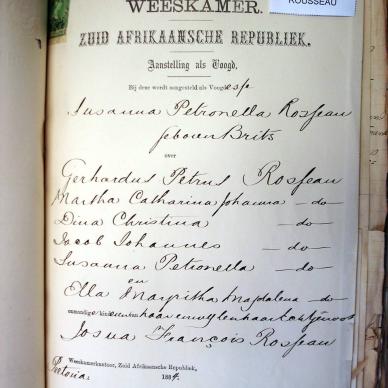 ROUSSEAU
WEESKAMER.
ZUID AFRIKAANSCHE REPUBLIEK.
Aanstelling als Voogd.
Bij deze wordt aangesteld als Voogdesse
Susanna Petronella Rosseau
geboren Brits
over
Gerhardus Petrus Rosseau
Martha Catharina Johanna —do—
Dina Christina —do—
Jacob Johannes —do—
Susanna Petronella —do—
en
Ella Margritha Magdalena —do
onmondige kinderen van haar en wijlen haar echtgenoot
Josua François Rosseau
Weeskamerkantoor, Zuid Afrikaansche Republiek,
Pretoria 1884.